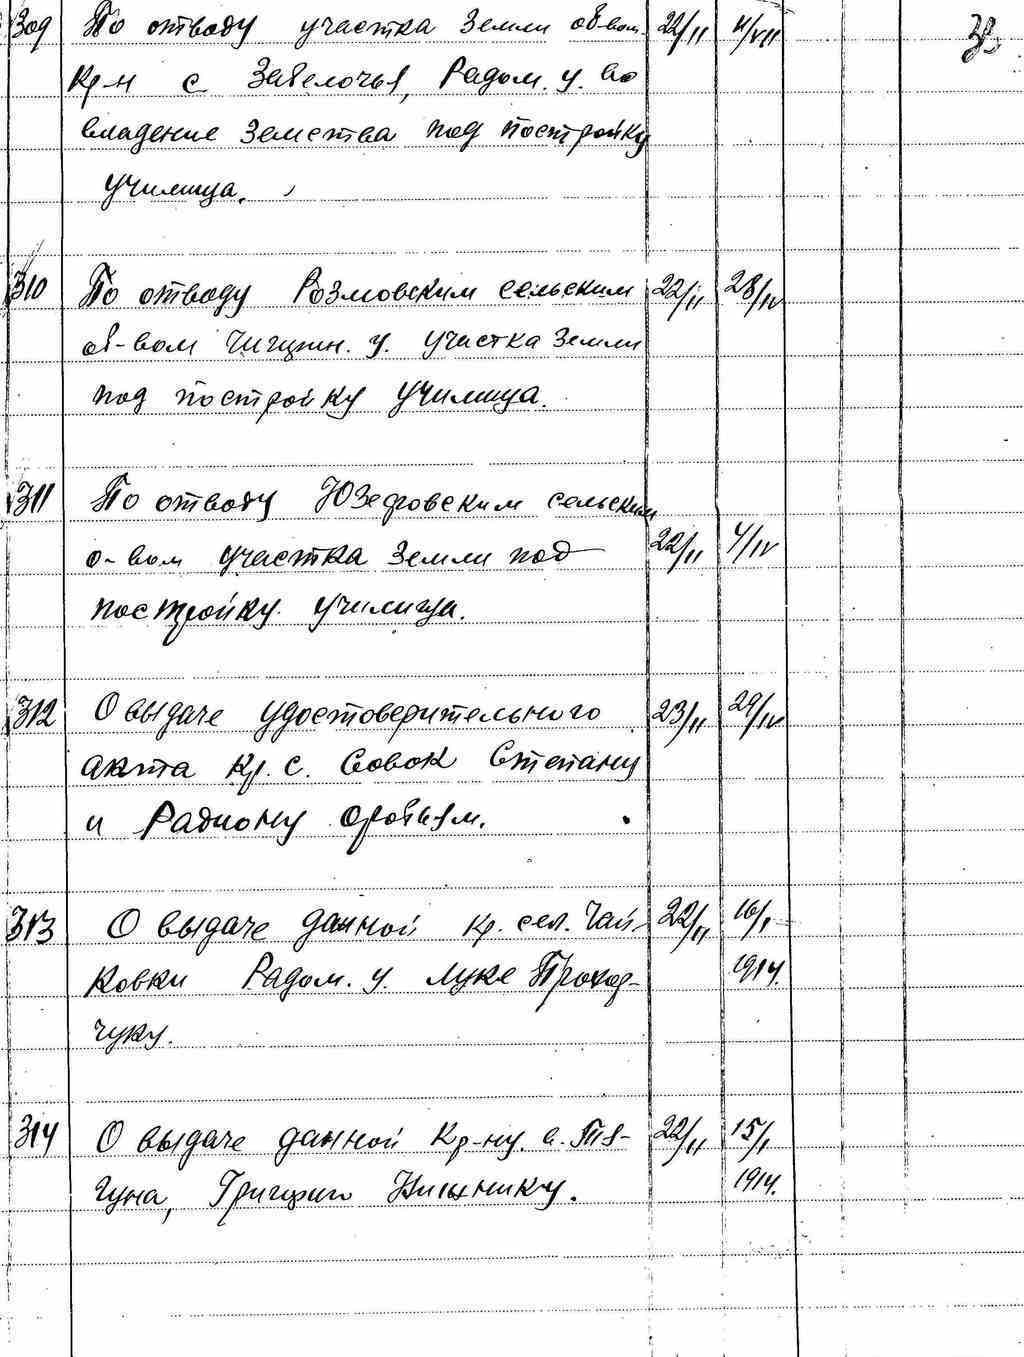 309 По отводу участка земли об-вом 22/II 4/VII
Кр-н с Забелочья, Радом. у. во
владение Земства под постройку
училища.
310 По отводу Розмовским сельским 22/II 28/IV
об-вом Чигирин. у. участка земли
под постройку училища.
311 По отводу Юзефовским сельским
о-вом участка земли под 22/II 4/IV
постройку училища.
312 О выдаче удостоверительного 23/II 29/IV
акта Кр. с. Совок Степану
и Радиону
313 О выдаче данной кр. сел. Чай- 22/II 16/I
ковки Радом. у. Луке Проход- 1914.
чуку.
314 О выдаче данной Кр-ну с. 22/II 15/I
Григорию 1914.